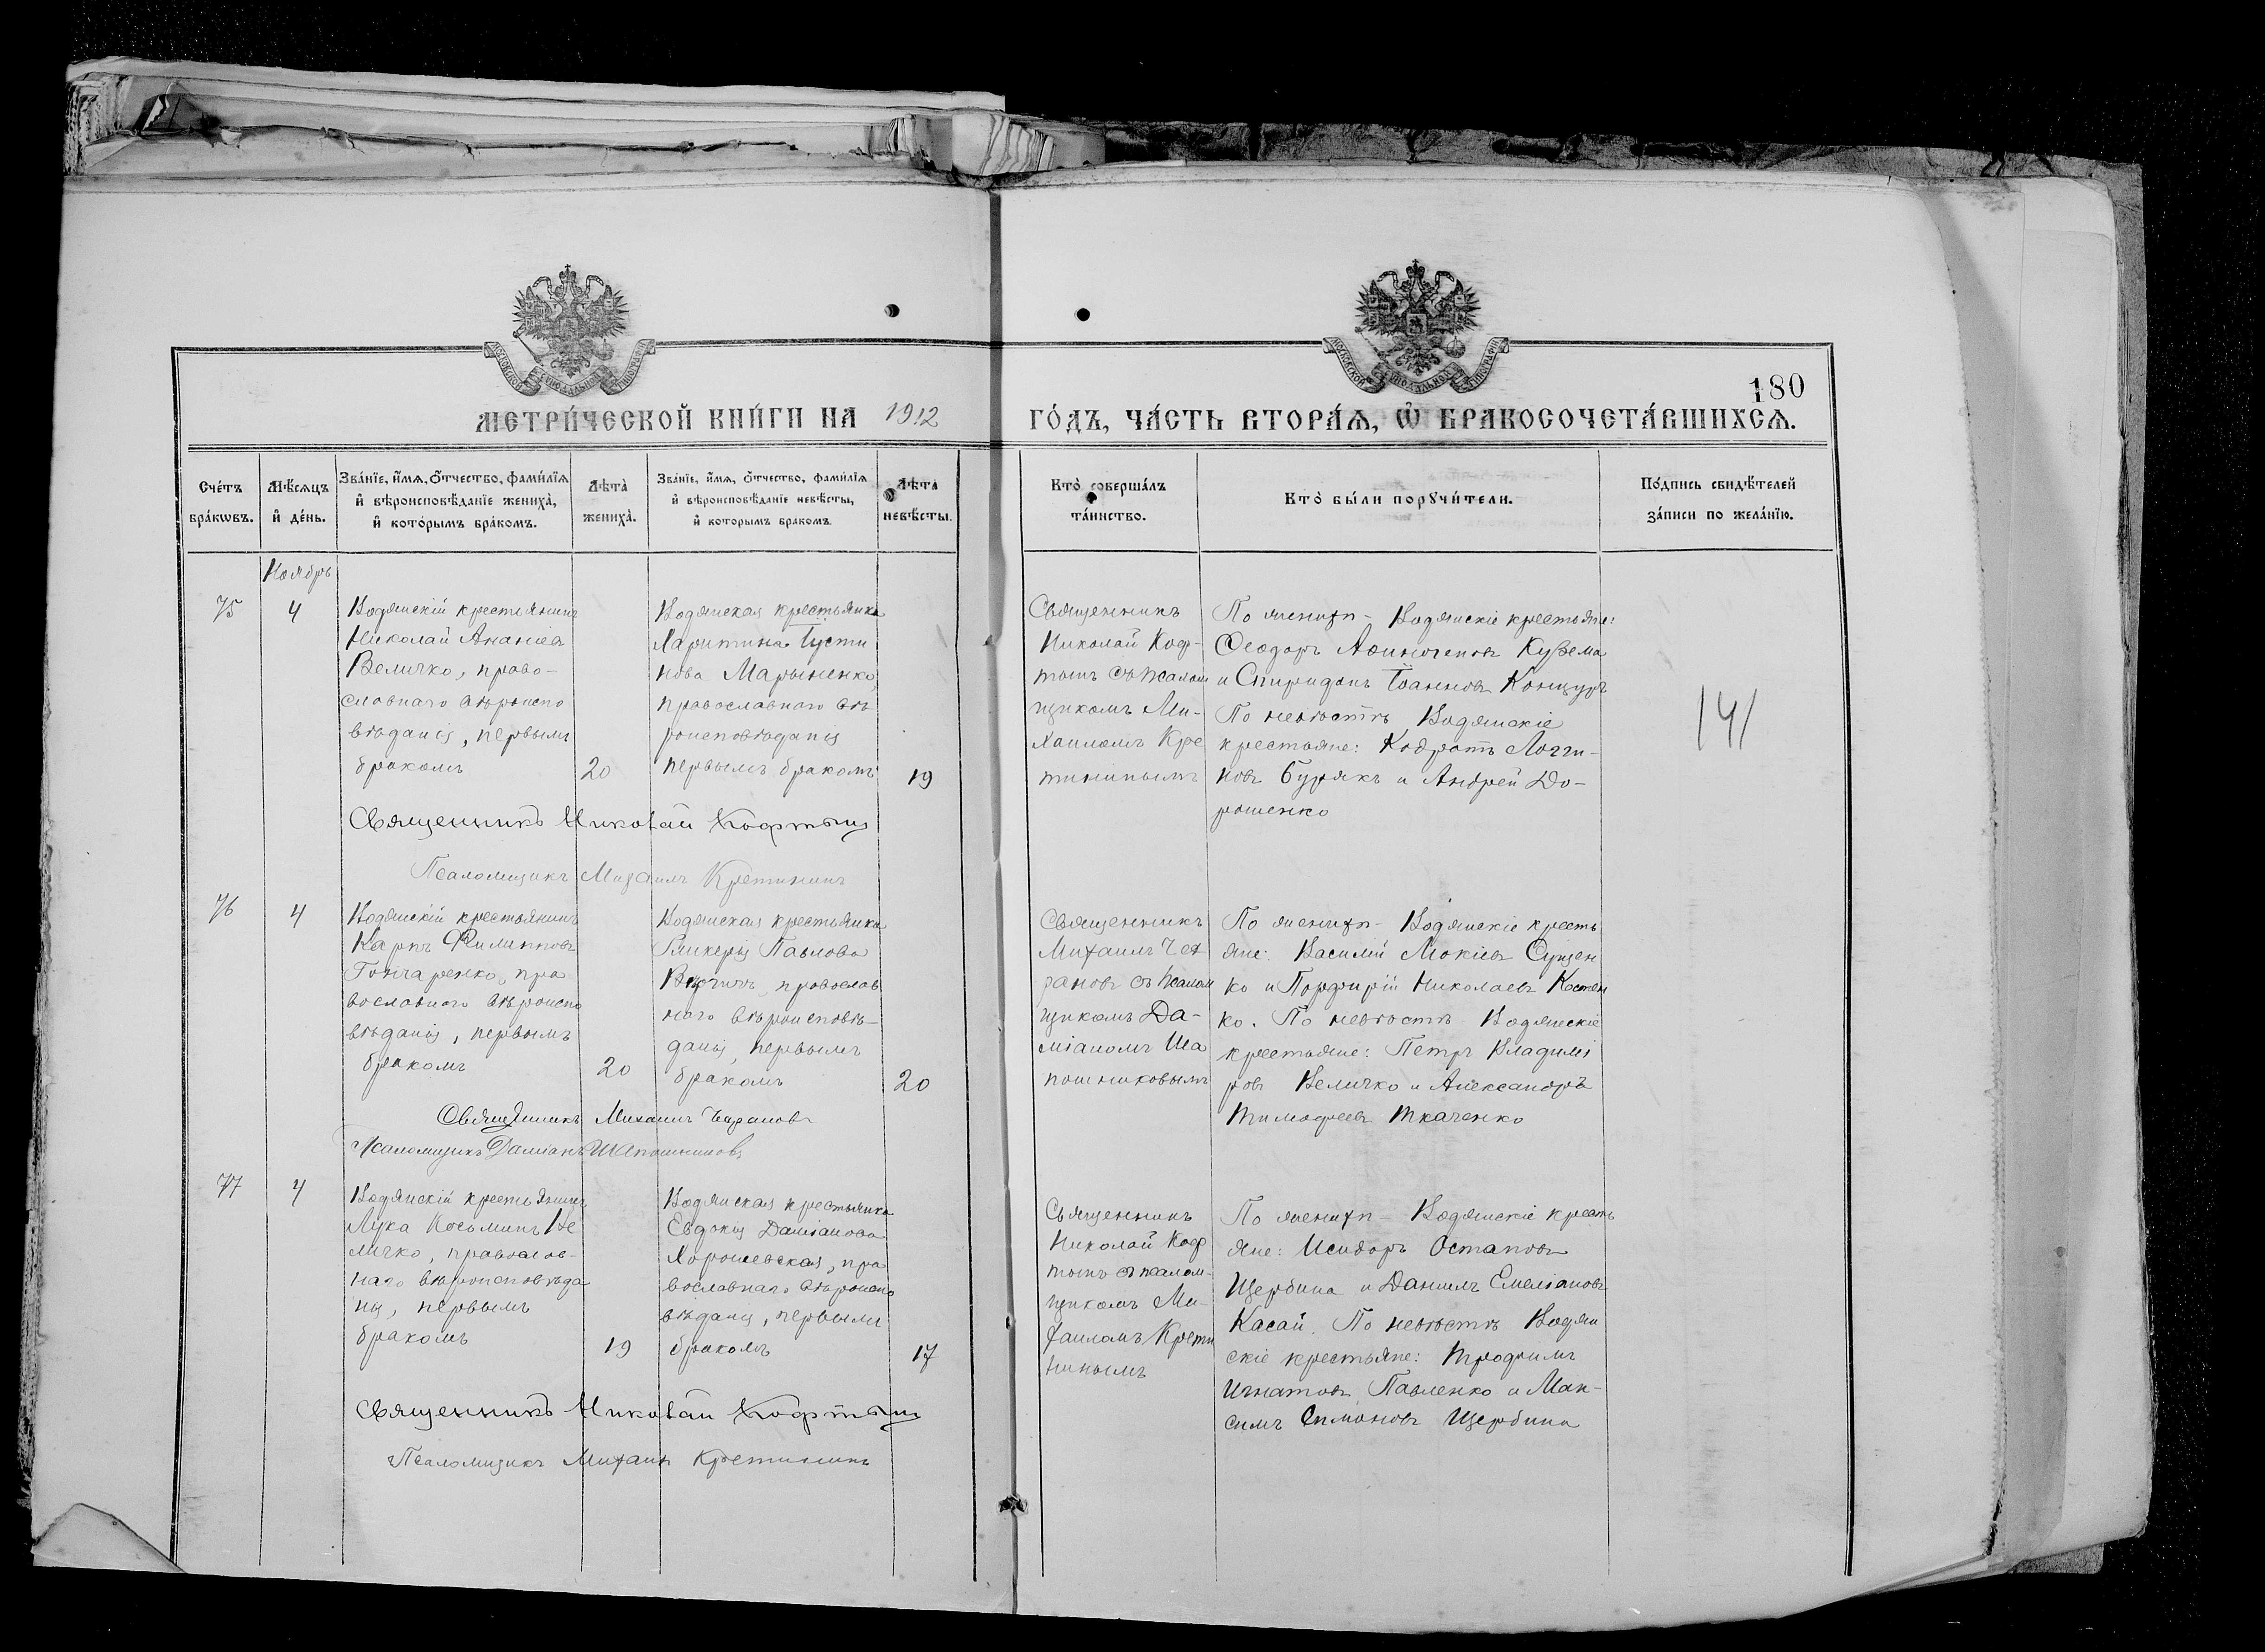 180
МЕТРИ́ЧЕСКОЙ КНИ́ГИ НА 1912 ГО́ДЪ, ЧА́СТЬ ВТОРА́Я, Ѿ БРАКОСОЧЕТА́ВШИХСЯ.
Сче́тъ бра́кѡвъ.
Мѣ́сяцъ и҆ де́нь.
Зва́нїе, и҆́мя, ѻ҆́тчество, фами́лїя
и҆ вѣроисповѣ́данїе жениха̀,
и҆ кото́рымъ бра́комъ.
Лѣ́та̀ жениха̀.
Зва́нїе, и҆́мя, ѻ҆́тчество, фами́лїя
и҆ вѣроисповѣ́данїе невѣ́сты,
и҆ которымъ бракомъ.
Лѣ́та̀ невѣ́сты.
Кто̀ соверша́лъ
та́инство.
Кто̀ бы́ли порꙋчи́тели.
По́дпись свидѣ́телей
за́писи по жела́нїю.
Ноябрь
75
4
Водянскій крестьянинъ
Николай Ананіев
Величко, право-
славнаго вѣроиспо
вѣданія, первымъ
бракомъ
20
Водянская крестьянка
Марыненко,
православнаго вѣ
роисповѣданія
первымъ бракомъ
19
Священникъ
Николай Коф-
тынъ съ псалом
щикомъ Ми-
хаиломъ Кре
тининымъ
По женихѣ - Водянскіе крестьяне:
Ѳеодоръ Кузема
и Спиридонъ Іоанновъ Концуръ
По невѣстѣ Водянскіе
крестьяне: Кодратъ Логги-
новъ Бурякъ и Андрей До-
рошенко
141
Священникъ Николай Кофтынъ
Псаломщикъ Михаилъ Кретининъ
76
4
Водянскій крестьянинъ
Карпъ Филипповъ
Гончаренко, пра
вославнаго вѣроиспо
вѣданія, первымъ
бракомъ
20
Водянская крестьянка
Гликерія Павлова
православ
наго вѣроисповѣ-
данія, первымъ
бракомъ
20
Священникъ
Михаилъ
съ псалом
щикомъ Да-
міаномъ Ша
пошниковымъ
По женихѣ - Водянскіе кресть
яне: Василій Мокіевъ Сущен
ко и Порфирій Николаевъ Костен
ко. По невѣстѣ Водянскіе
крестьяне: Петръ Владимі
ровъ Величко и Александръ
Тимофеевъ Ткаченко
Священникъ Михаилъ
Псаломщикъ Даміанъ Шапошниковъ
77
4
Водянскій крестьянинъ
Лука Косьминъ Ве
личко, православ-
наго вѣроисповѣда
нія, первымъ
бракомъ
19
Водянская крестьянка
Евдокія Даміанова
Хорошевская, пра
вославнаго вѣроиспо
вѣданія, первымъ
бракомъ
17
Священникъ
Николай Коф
тынъ съ псалом-
щикомъ Ми-
хаиломъ Крети
нинымъ
По женихѣ - Водянскіе кресть
яне: Исидоръ Остаповъ
Щербина и Даніилъ Емеліановъ
Касай. По невѣстѣ Водян
скіе крестьяне: Трофимъ
Игнатовъ Павленко и Мак-
симъ Симоновъ Щербина
Священникъ Николай Кофтынъ
Псаломщикъ Михаилъ Кретининъ